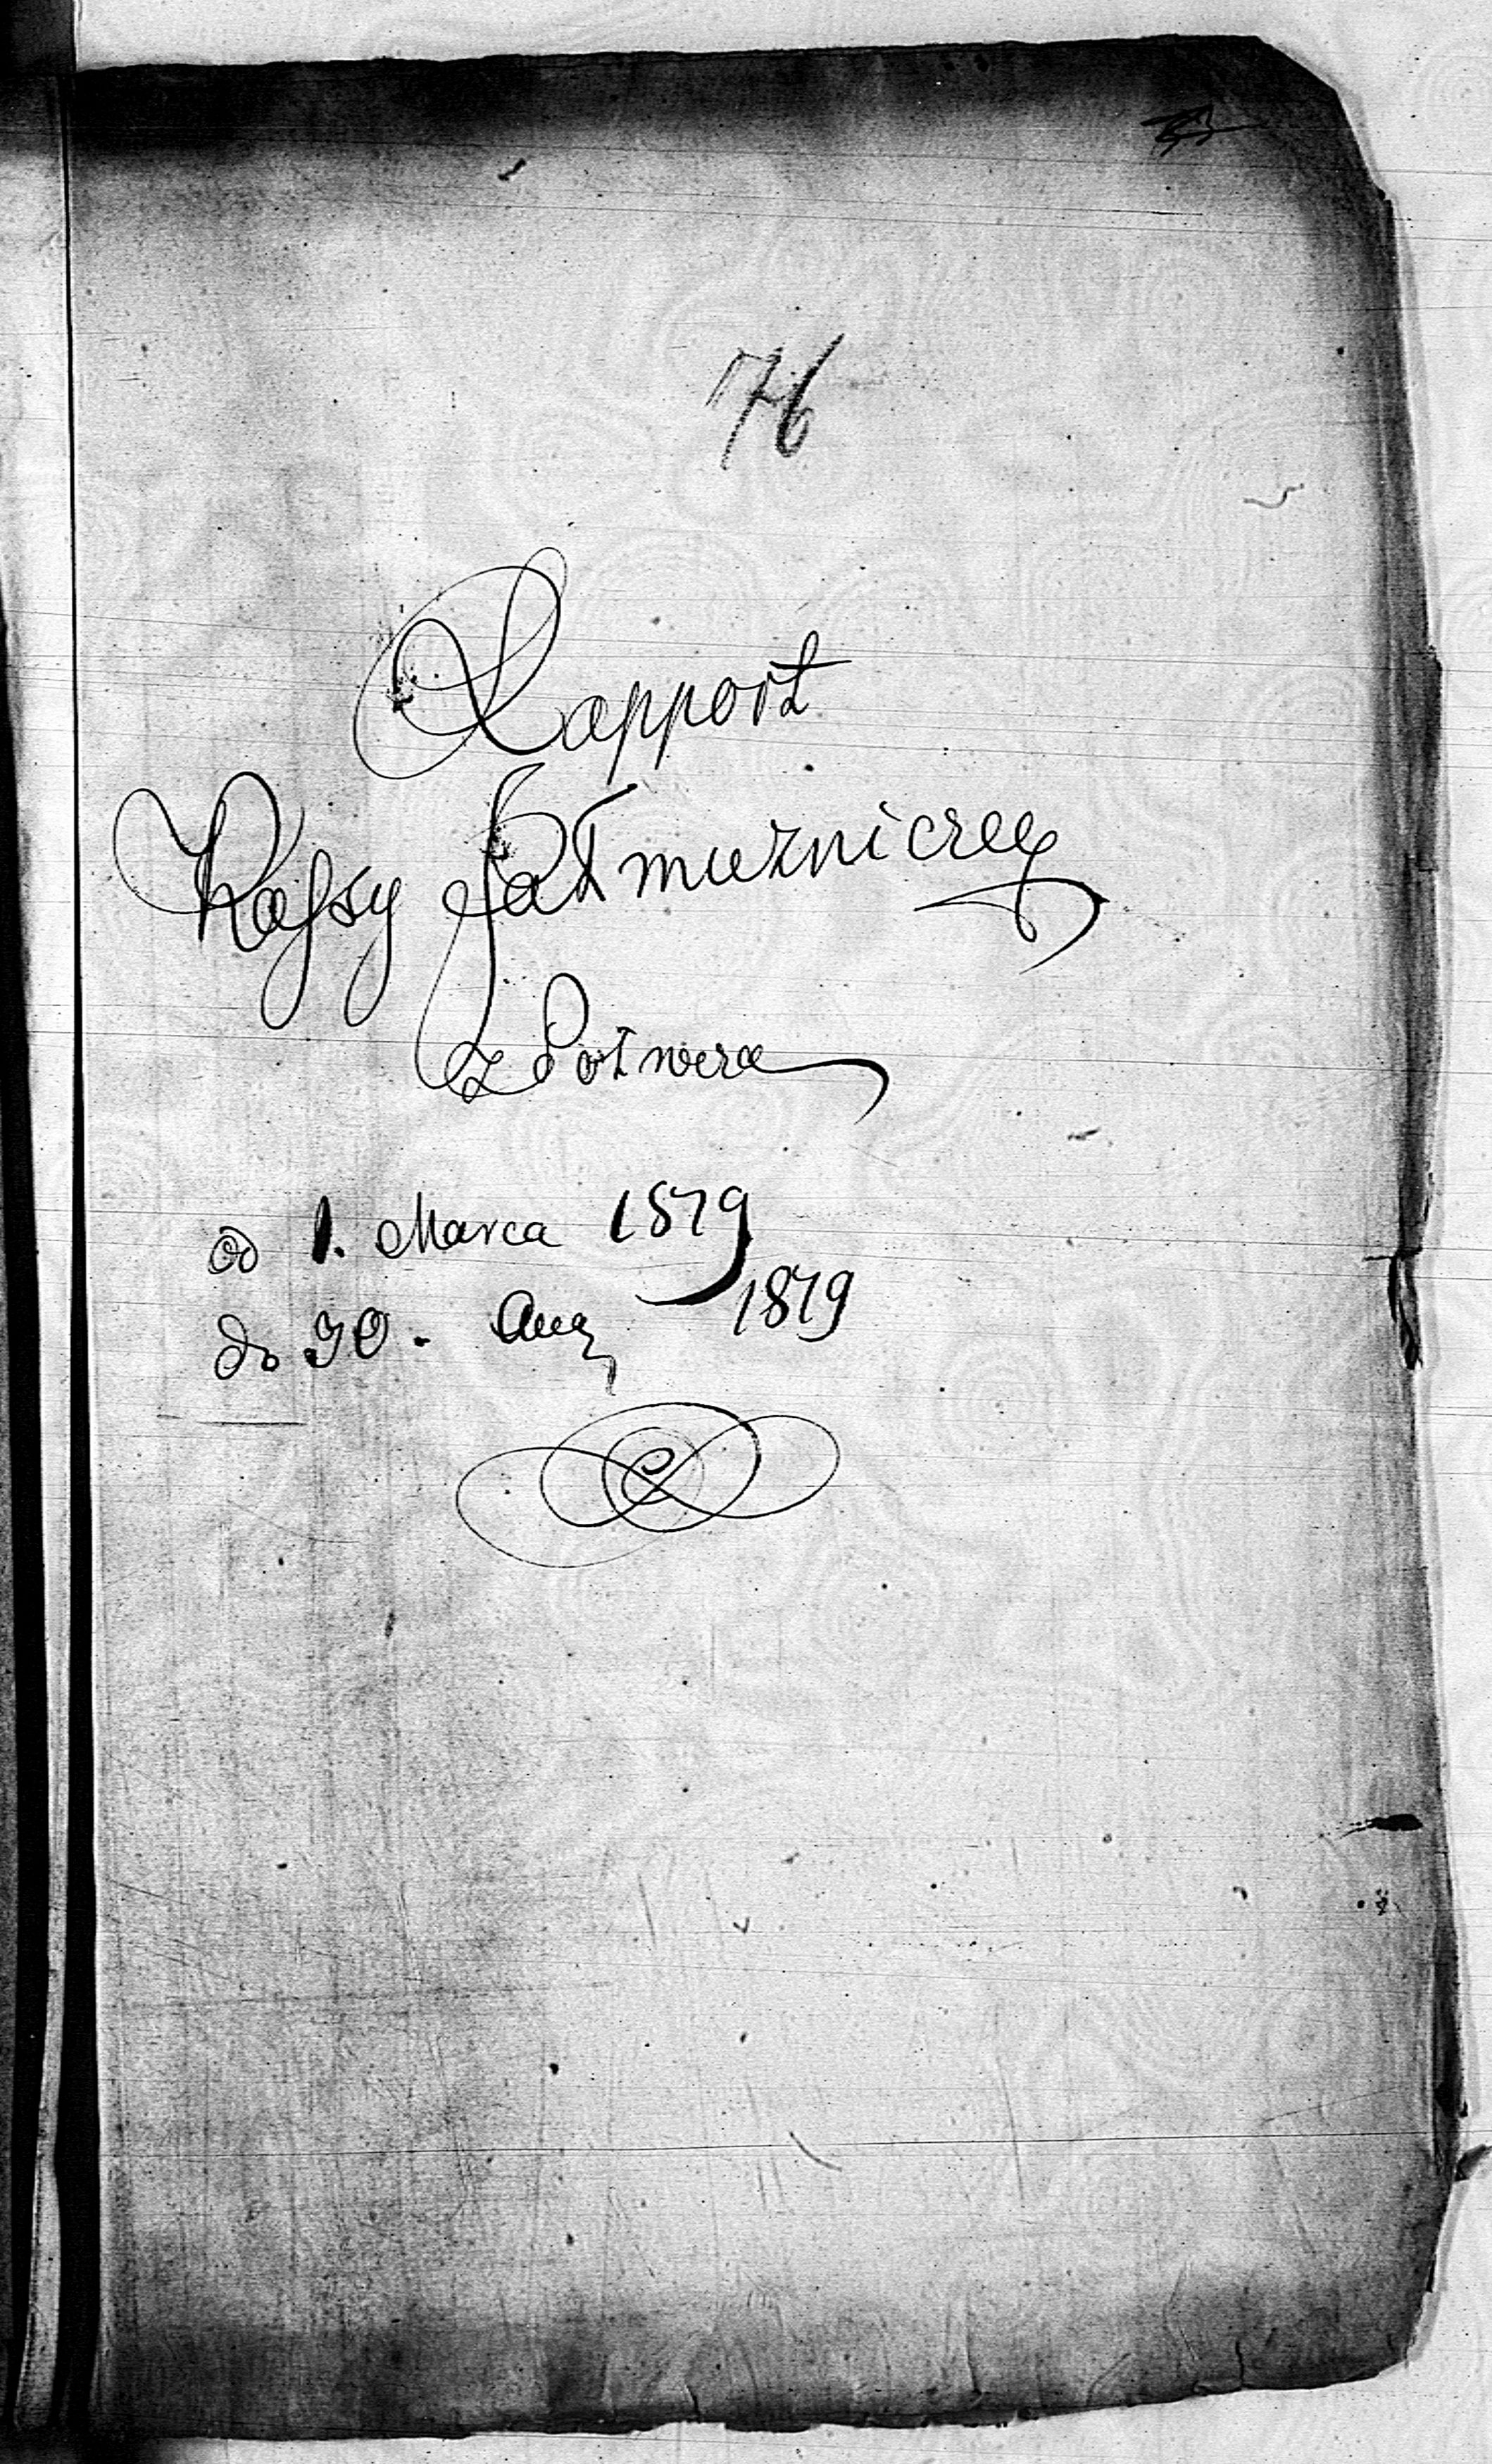 76
Rapport
Kassy Jałmużniczey
z Połwsza
od 1. Marca 1879
do 30. Aug 1879